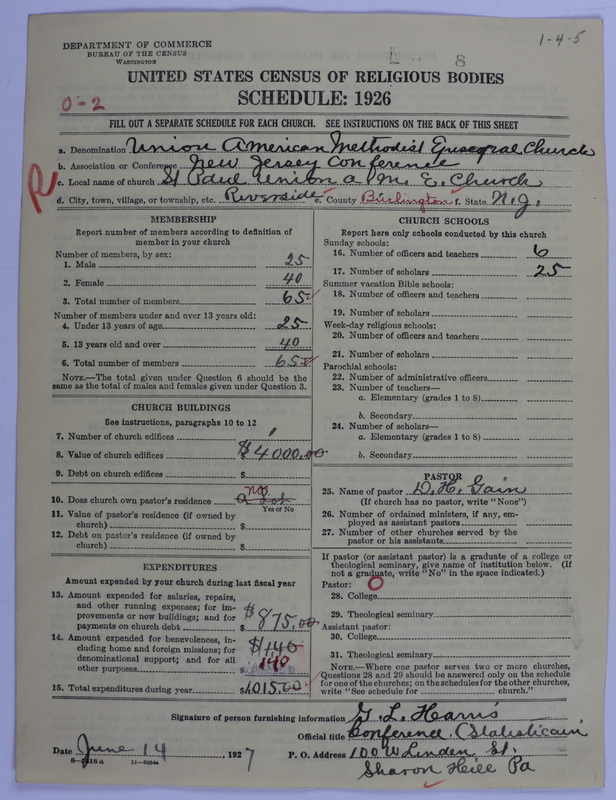 1-4-5
DEPARTMENT OF COMMERCE
BUREAU OF THE CENSUS
WASHINGTON
8
UNITED STATES CENSUS OF RELIGIOUS BODIES
SCHEDULE: 1926
0-2
FILL OUT A SEPARATE SCHEDULE FOR EACH CHURCH. SEE INSTRUCTIONS ON THE BACK OF THIS SHEET
R
a. Denomination Union American Methodist Episcopal Church
b. Association or Conference New Jersey Conference
c. Local name of church St Paul Union a. M. E. Church
d. City, town, village, or township, etc. Riverside e. County Burlington f. State N.J.
MEMBERSHIP
Report number of members according to definition of
member in your church
Number of members, by sex:
1. Male 25
2. Female 40
3. Total number of members 65
Number of members under and over 13 years old:
4. Under 13 years of age 25
5. 13 years old and over 40
6. Total number of members 65
NOTE.—The total given under Question 6 should be the
same as the total of males and females given under Question 3.
CHURCH BUILDINGS
See instructions, paragraphs 10 to 12
7. Number of church edifices 1
8. Value of church edifices $4000.00
9. Debt on church edifices $
10. Does church own pastor's residence no
Yes or No
11. Value of pastor's residence (if owned by
church) $
12. Debt on pastor's residence (if owned by
church) $
EXPENDITURES
Amount expended by your church during last fiscal year
13. Amount expended for salaries, repairs,
and other running expenses; for im-
provements or new buildings; and for
payments on church debt $875.00
14. Amount expended for benevolences, in-
cluding home and foreign missions; for
denominational support; and for all
other purposes $140
140
15. Total expenditures during year $1015.00
CHURCH SCHOOLS
Report here only schools conducted by this church
Sunday schools:
16. Number of officers and teachers 6
17. Number of scholars 25
Summer vacation Bible schools:
18. Number of officers and teachers
19. Number of scholars
Week-day religious schools:
20. Number of officers and teachers
21. Number of scholars
Parochial schools:
22. Number of administrative officers
23. Number of teachers—
a. Elementary (grades 1 to 8)
b. Secondary
24. Number of scholars—
a. Elementary (grades 1 to 8)
b. Secondary
PASTOR
25. Name of pastor D. H. Gain
(If church has no pastor, write "None")
26. Number of ordained ministers, if any, em-
ployed as assistant pastors
27. Number of other churches served by the
pastor or his assistants
If pastor (or assistant pastor) is a graduate of a college or
theological seminary, give name of institution below. (If
not a graduate, write "No" in the space indicated.)
Pastor: O
28. College
29. Theological seminary
Assistant pastor:
30. College
31. Theological seminary
NOTE.—Where one pastor serves two or more churches,
Questions 28 and 29 should be answered only on the schedule
for one of the churches; on the schedules for the other churches,
write "See schedule for church."
Signature of person furnishing information G. L. Harris
Official title Conference (Statisticain
Date June 14, 1927 P. O. Address 100 W Linden St.
Sharon Heill Pa